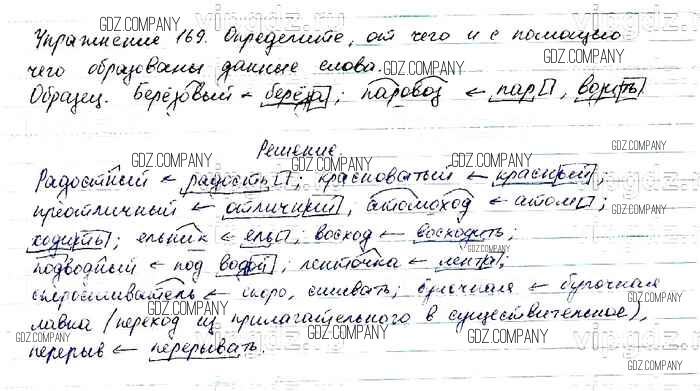 Упражнение 169. Определите, от чего и с помощью
чего образованы данные слова.
Образец. Берёзовый ← берёза; паровоз ← пар, возить
Решение
Радостный ← радость; красноватый ← красный;
преотличный ← отличный, атомоход ← атом;
ходить; ельник ← ель, восход ← восходить;
подводный ← под водой, ленточка ← лента;
скоросшиватель ← скоро, сшивать; булочная ← булочная
лавка (переход из прилагательного в существительное),
перерыв ← перерывать.
GDZ.COMPANY
vipgdz.ru